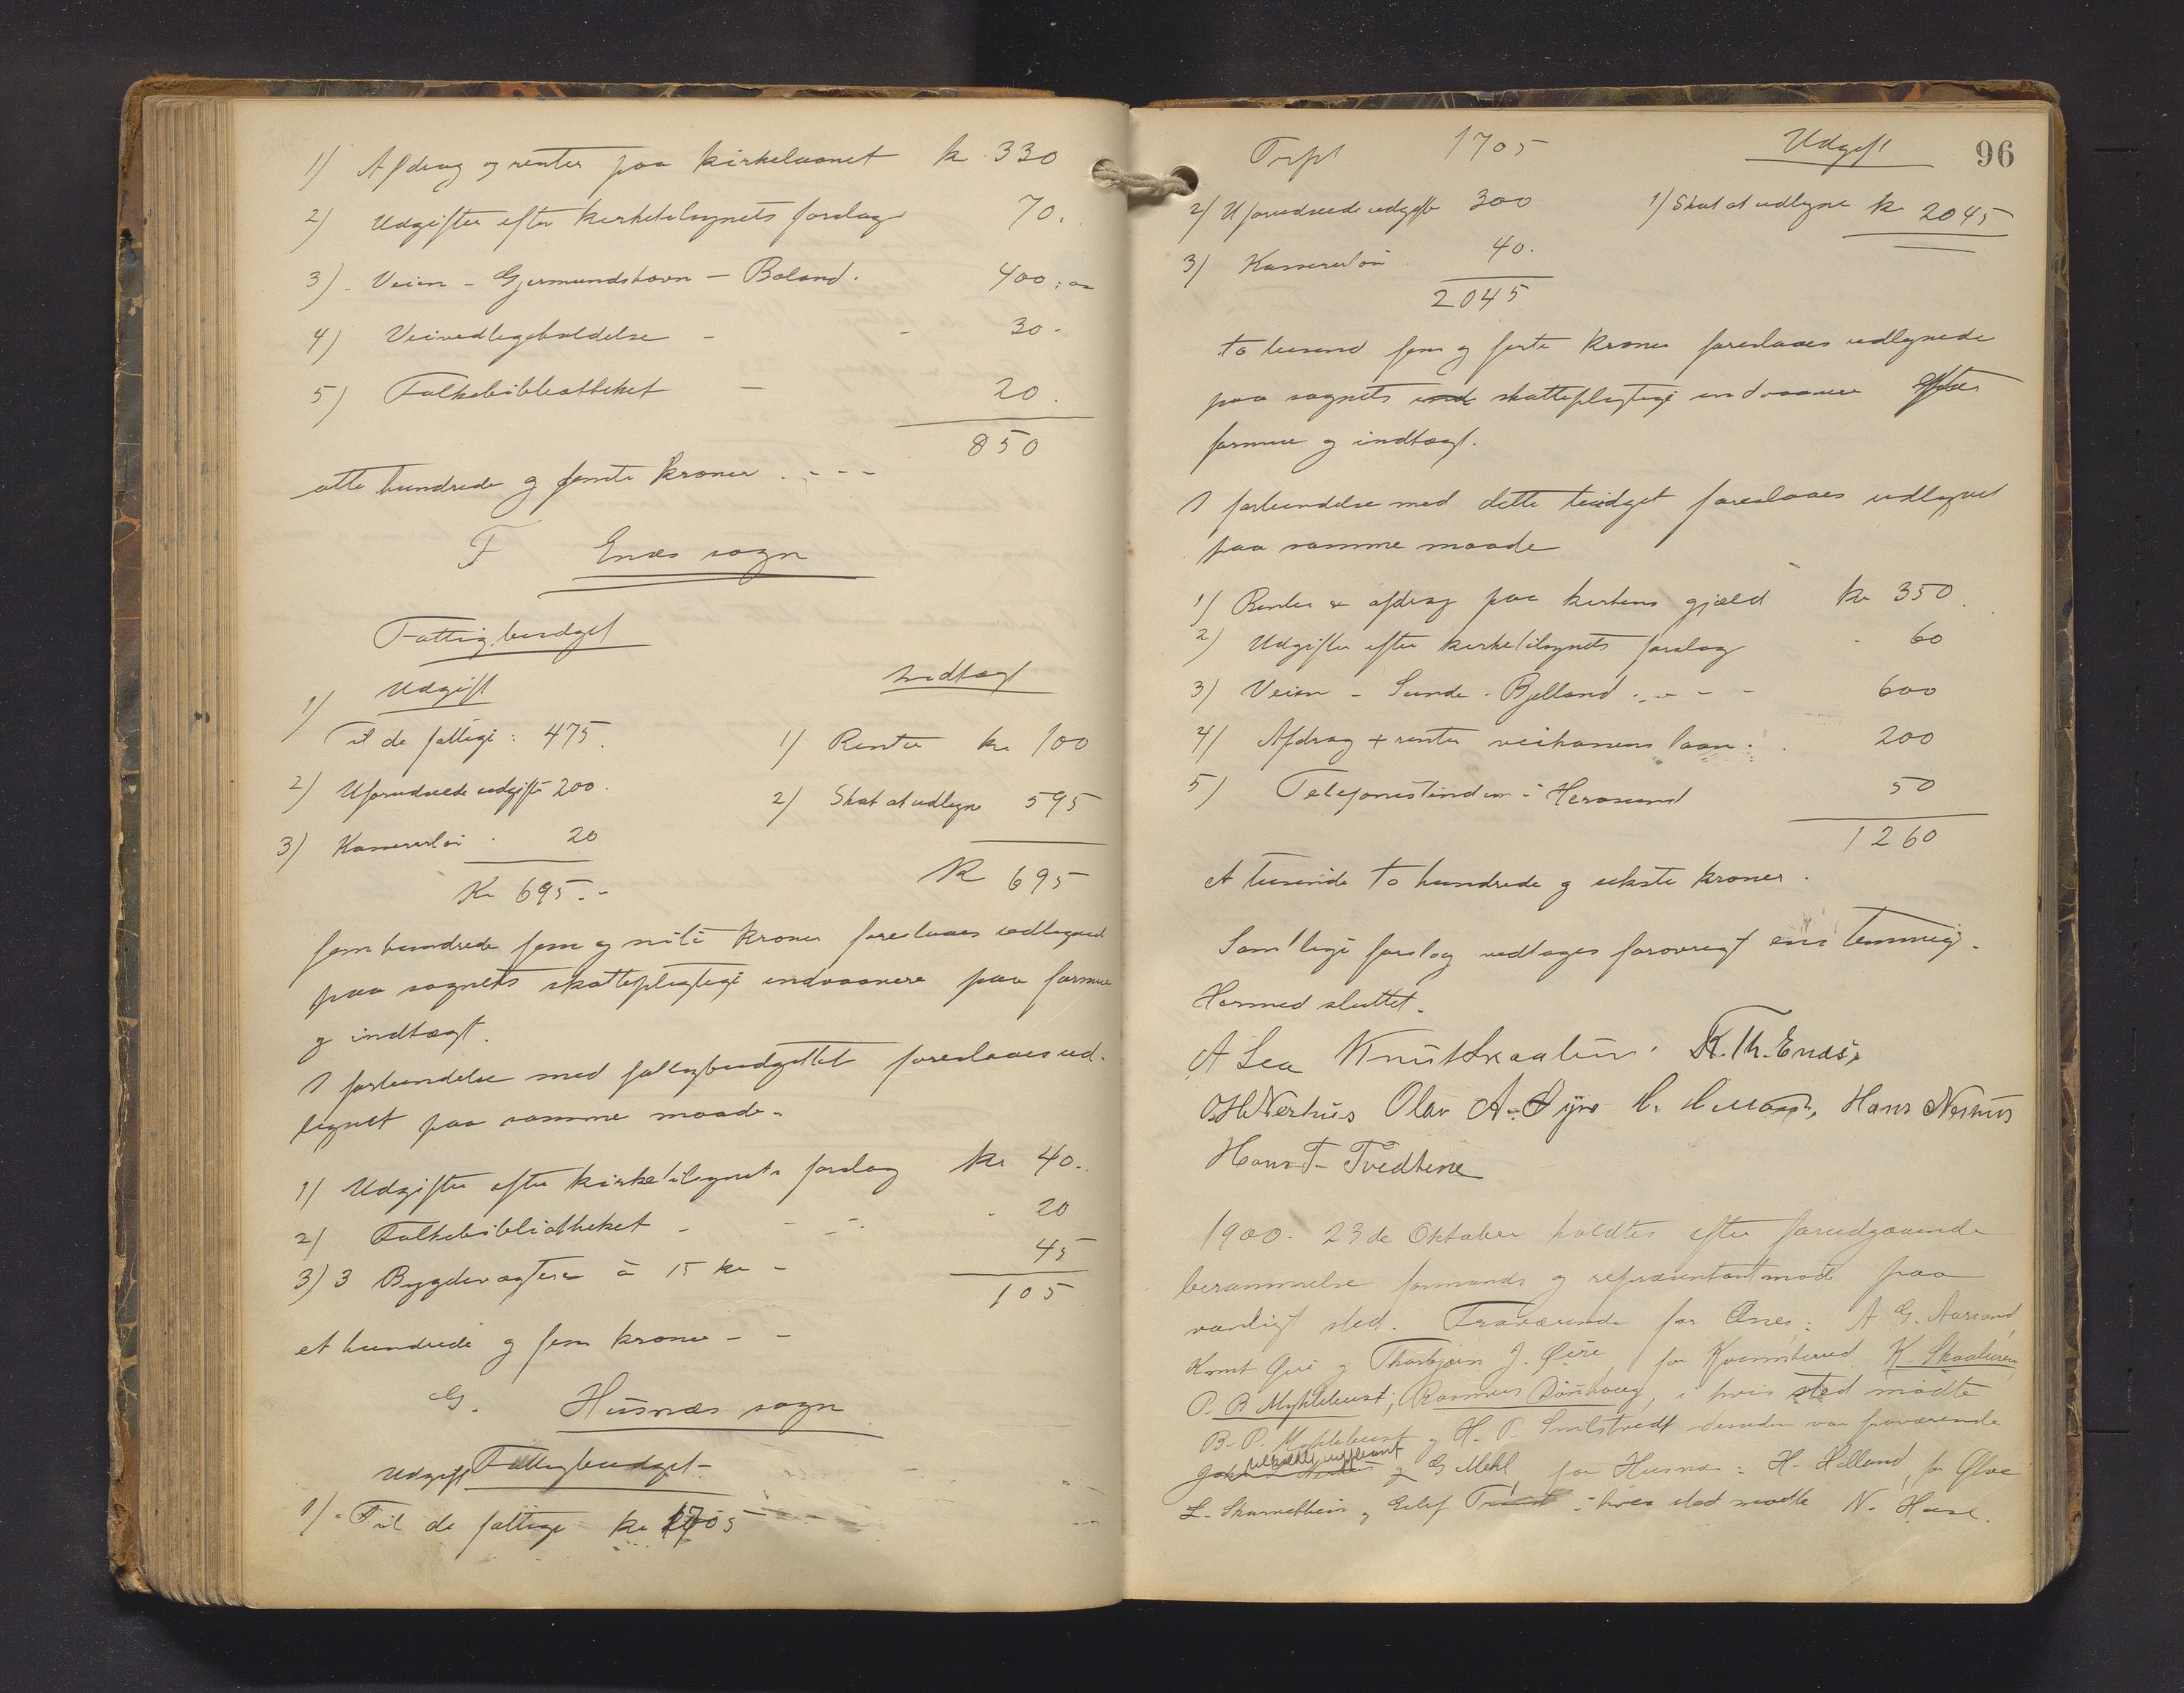 1) Afdrag og renter paa kirkelaanet kr 330
2) Udgifter efter kirketilsynets forslag 70.
3) - Veien - Gjermundshavn - Boland. 400:00
4) Veivedligeholdelse - - 30-
5) Folkebibliotheket - 20.
850
otte hundrede og femti kroner . - - -
F Enæs sogn
Fattigbudget
Udgift Indtægt
1) Til de fattige : 475. 1) Renter kr 100
2) Uforudseede udgifter 200. 2) Skat at udligne 595
3) Kassererløn . 20
Kr 695.- Kr 695
fem hundrede fem og niti kroner foreslaaes udlignet
paa sognets skattepligtige indvaanere paa formue
og indtægt.
I forbindelse med fattigbudgettet foreslaaes ud-
lignet paa samme maade.
1) Udgifter efter kirketilsynets forslag kr 40.
2) Folkebibliotheket - - - - 20
3) 3 Bygdevægtere à 15 kr - 45
105
et hundrede og fem kroner - -
G. Husnæs sogn
Udgift Fattigbudget-
1) - Til de fattige kr 1705
96
Trspt 1705 Udgift
2) Uforudseede udgifter 300 1) Skat at udligne kr 2045
3) Kassererløn . 40.
2045
to tusend fem og forti kroner foreslaaes udlignede
paa sognets ind skattepligtige indvaanere efter
formue og indtægt.
I forbindelse med dette budget foreslaaes udlignet
paa samme maade
1) Renter & afdrag paa kirkens gjæld kr 350.
2) Udgifter efter kirketilsynets forslag - 60
3) Veien - Sunde - Bjelland . - - - 600
4) Afdrag + renter veikassens laan . . 200
5) Telefonstinden i Herøsund 50
1260
et tusinde to hundrede og seksti kroner.
Samtlige forslag vedtages forøvrigt enstemmig.
Hermed sluttet.
A Lea Knut Skaaluren. K. Th. Enæs,
O H Nerhus Olav A. Øyre H. Hans Nerhus
Hans T- Tvedtene
1900. 23de Oktober holdtes efter forudgaaende
berammelse formands og repræsentantmøde paa
vanligt sted. Fraværende for Ænes: A G. Aarsand,
Knut Øire og Thorbjørn J. Øire, for Kvinnherred K. Skaaluren,
P. B Myklebust, Rasmus, i hvis sted mødte
B. P. Myklebust og H. P. Snilstvedt desuden var fraværende
tilkaldte suppleant
og G Mehl, for Husnæs: H. Helland, for Ølve
L. Skarvettein og Eilef i hvis sted mødte N.